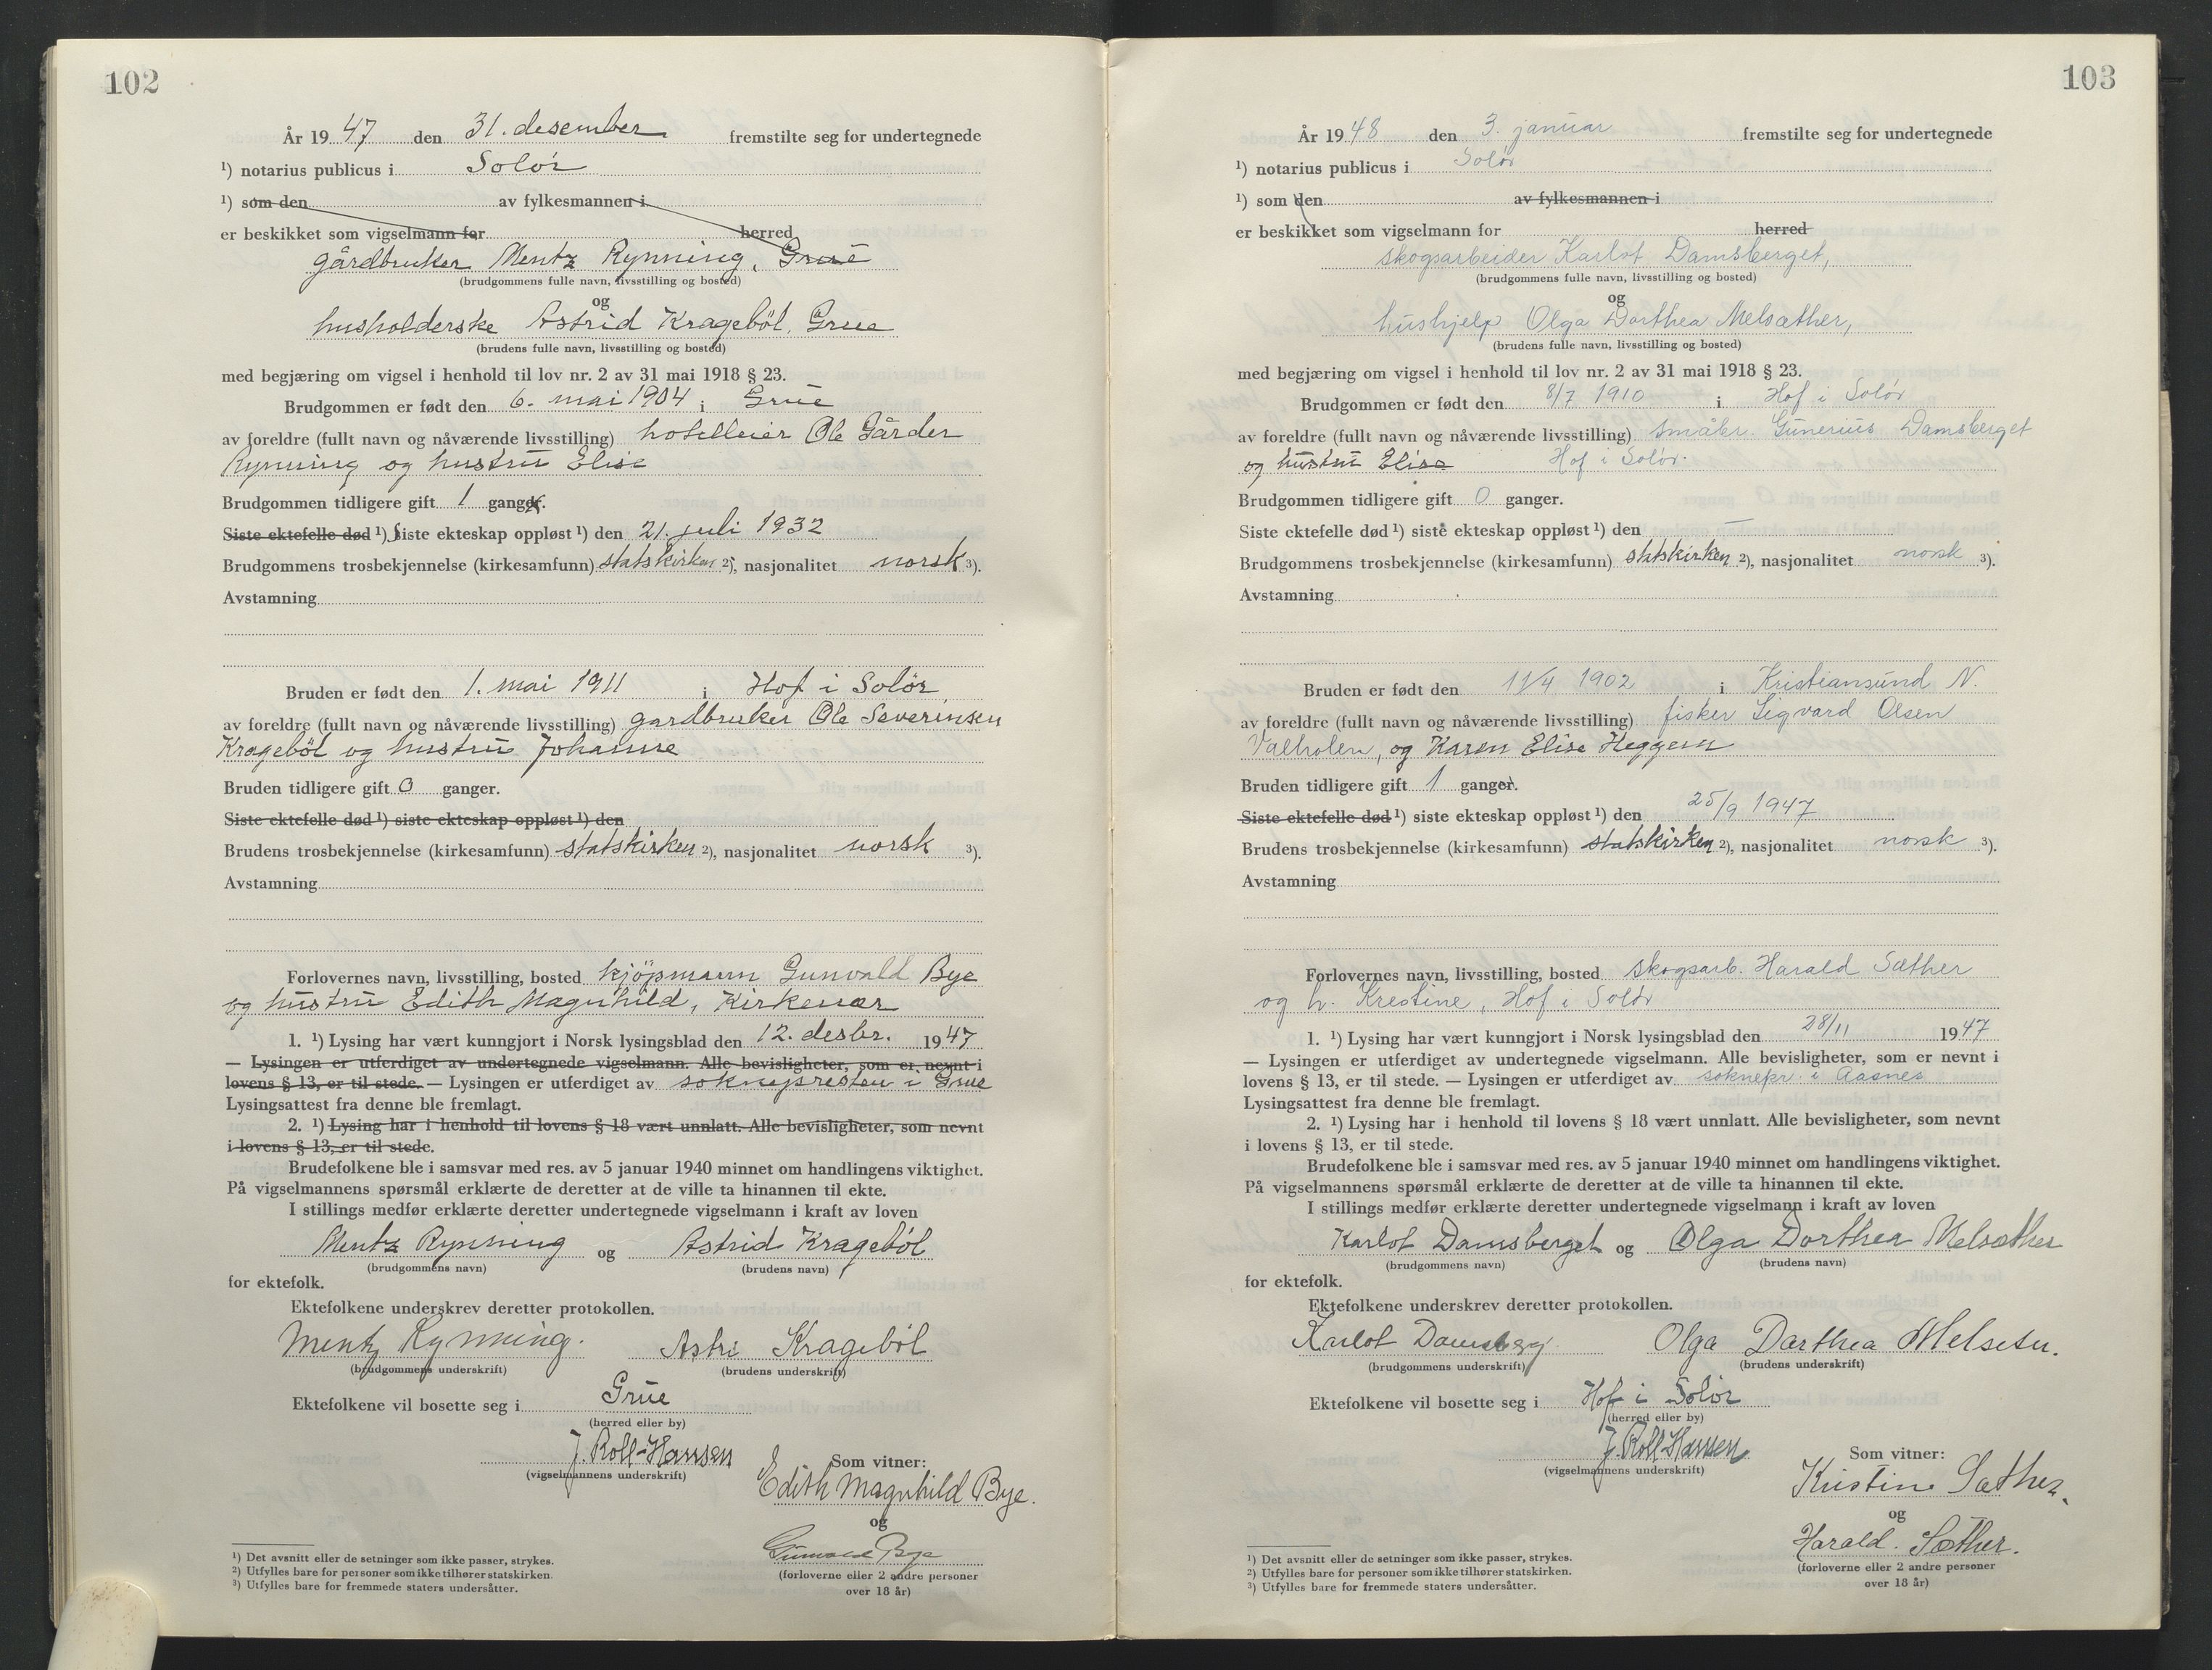 102
År 1947 den 31. desember fremstilte seg for undertegnede
¹) notarius publicus i Solör
¹) som den av fylkesmannen i
er beskikket som vigselmann for herred
gårdbruker Mentz Rynning, Grue
(brudgommens fulle navn, livsstilling og bosted)
og
husholderske Astrid Krageböl, Grue
(brudens fulle navn, livsstilling og bosted)
med begjæring om vigsel i henhold til lov nr. 2 av 31 mai 1918 § 23.
Brudgommen er født den 6. mai 1904 i Grue
av foreldre (fullt navn og nåværende livsstilling) hotelleier Ole Gårder
Rynning og hustru Elise
Brudgommen tidligere gift 1 ganger.
Siste ektefelle død ¹) siste ekteskap oppløst ¹) den 21. juli 1932
Brudgommens trosbekjennelse (kirkesamfunn) statskirken ²), nasjonalitet norsk ³).
Avstamning
Bruden er født den 1. mai 1911 i Hof i Solör
av foreldre (fullt navn og nåværende livsstilling) gardbruker Ole Severinsen
Krageböl og hustru Johanne
Bruden tidligere gift 0 ganger.
Siste ektefelle død ¹) siste ekteskap oppløst ¹) den
Brudens trosbekjennelse (kirkesamfunn) statskirken ²), nasjonalitet norsk ³).
Avstamning
Forlovernes navn, livsstilling, bosted kjöpmann Gunvald Bye
og hustru Edith Magnhild, Kirkenær
1. ¹) Lysing har vært kunngjort i Norsk lysingsblad den 12. desbr. 1947
— Lysingen er utferdiget av undertegnede vigselmann. Alle bevisligheter, som er nevnt i
lovens § 13, er til stede. — Lysingen er utferdiget av soknepresten i Grue
Lysingsattest fra denne ble fremlagt.
2. ¹) Lysing har i henhold til lovens § 18 vært unnlatt. Alle bevisligheter, som nevnt
i lovens § 13, er til stede.
Brudefolkene ble i samsvar med res. av 5 januar 1940 minnet om handlingens viktighet.
På vigselmannens spørsmål erklærte de deretter at de ville ta hinannen til ekte.
I stillings medfør erklærte deretter undertegnede vigselmann i kraft av loven
Mentz Rynning og Astrid Krageböl
(brudgommens navn) (brudens navn)
for ektefolk.
Ektefolkene underskrev deretter protokollen.
Mentz Rynning. Astri Krageböl
(brudgommens underskrift) (brudens underskrift)
Ektefolkene vil bosette seg i Grue
(herred eller by)
J. Roll-Hansen
(vigselmannens underskrift)
Som vitner:
Edith Magnhild Bye.
og
Gunvald Bye
(forloverne eller 2 andre personer
over 18 år)
¹) Det avsnitt eller de setninger som ikke passer, strykes.
²) Utfylles bare for personer som ikke tilhører statskirken.
³) Utfylles bare for fremmede staters undersåtter.
103
År 1948 den 3. januar fremstilte seg for undertegnede
¹) notarius publicus i Solör
¹) som den av fylkesmannen i
er beskikket som vigselmann for herred
skogsarbeider Karlot Damsberget,
(brudgommens fulle navn, livsstilling og bosted)
og
hushjelp Olga Dorthea Melsæther,
(brudens fulle navn, livsstilling og bosted)
med begjæring om vigsel i henhold til lov nr. 2 av 31 mai 1918 § 23.
Brudgommen er født den 8/7 1910 i Hof i Solör
av foreldre (fullt navn og nåværende livsstilling) småbr. Gunerius Damsberget
og hustru Elise Hof i Solör.
Brudgommen tidligere gift 0 ganger.
Siste ektefelle død ¹) siste ekteskap oppløst ¹) den —
Brudgommens trosbekjennelse (kirkesamfunn) statskirken ²), nasjonalitet norsk ³).
Avstamning
Bruden er født den 11/4 1902 i Kristiansund N.
av foreldre (fullt navn og nåværende livsstilling) fisker Sigvard Olsen
Valholen, og Karen Elise Heggem
Bruden tidligere gift 1 ganger.
Siste ektefelle død ¹) siste ekteskap oppløst ¹) den 25/9 1947
Brudens trosbekjennelse (kirkesamfunn) statskirken ²), nasjonalitet norsk ³).
Avstamning
Forlovernes navn, livsstilling, bosted skogsarb. Harald Sæther
og h. Krestine, Hof i Solör
1. ¹) Lysing har vært kunngjort i Norsk lysingsblad den 28/11 1947
— Lysingen er utferdiget av undertegnede vigselmann. Alle bevisligheter, som er nevnt i
lovens § 13, er til stede. — Lysingen er utferdiget av soknepr. i Aasnes
Lysingsattest fra denne ble fremlagt.
2. ¹) Lysing har i henhold til lovens § 18 vært unnlatt. Alle bevisligheter, som nevnt
i lovens § 13, er til stede.
Brudefolkene ble i samsvar med res. av 5 januar 1940 minnet om handlingens viktighet.
På vigselmannens spørsmål erklærte de deretter at de ville ta hinannen til ekte.
I stillings medfør erklærte deretter undertegnede vigselmann i kraft av loven
Karlot Damsberget og Olga Dorthea Melsæther
(brudgommens navn) (brudens navn)
for ektefolk.
Ektefolkene underskrev deretter protokollen.
Karlot Damsberg Olga Dorthea Melseter.
(brudgommens underskrift) (brudens underskrift)
Ektefolkene vil bosette seg i Hof i Solör
(herred eller by)
J. Roll-Hansen
(vigselmannens underskrift)
Som vitner:
Kristine Sæther.
og
Harald. Sæther.
(forloverne eller 2 andre personer
over 18 år)
¹) Det avsnitt eller de setninger som ikke passer, strykes.
²) Utfylles bare for personer som ikke tilhører statskirken.
³) Utfylles bare for fremmede staters undersåtter.